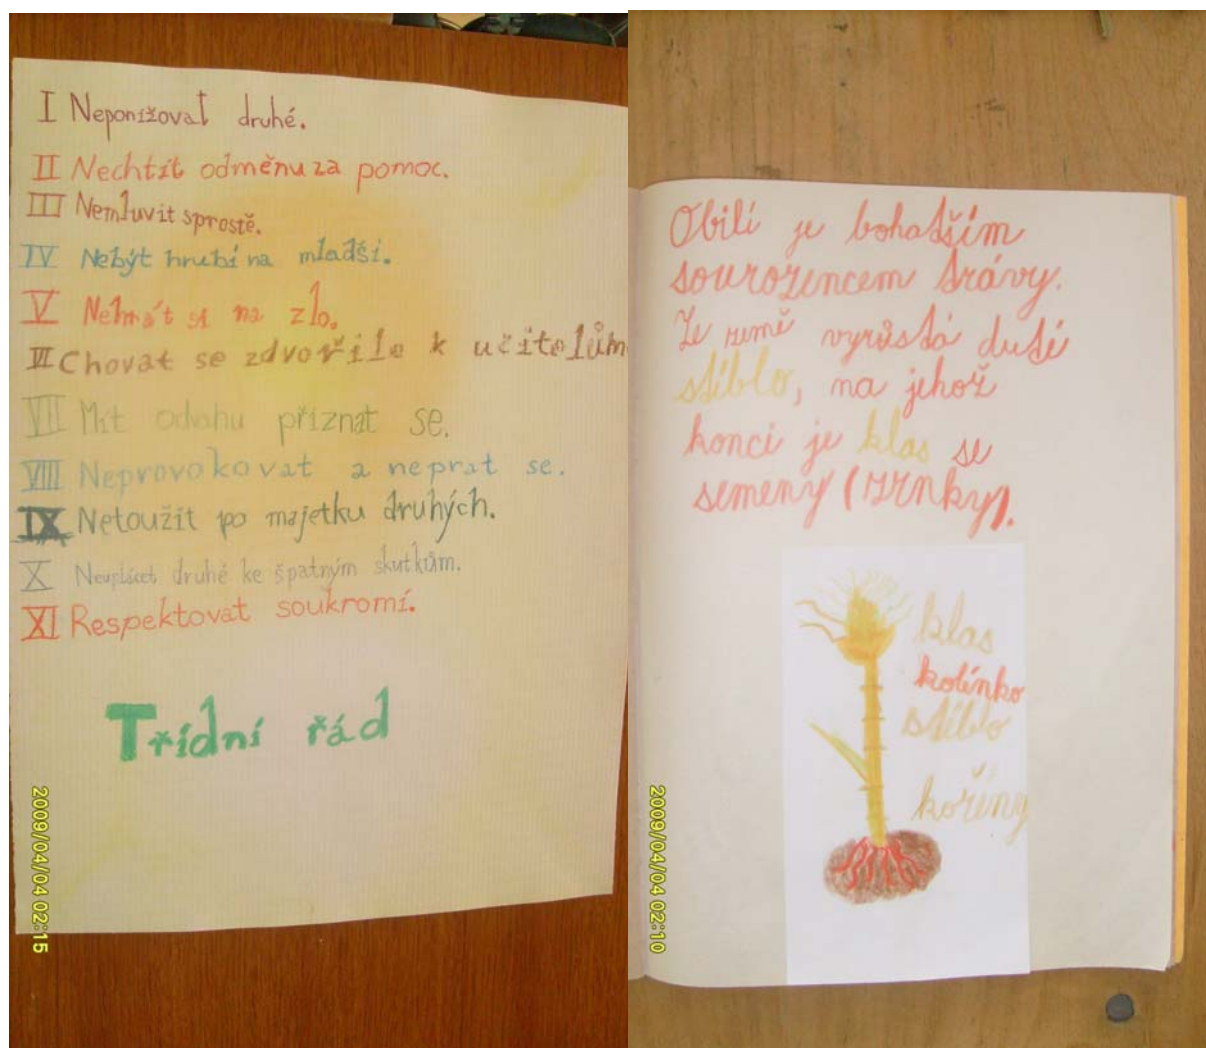 I Neponižovat druhé.
II Nechtít odměnu za pomoc.
III Nemluvit sprostě.
IV Nebýt hrubí na mladší.
V Nehrát si na zlo.
VI Chovat se zdvořile k učitelům
VII Mít odvahu přiznat se.
VIII Neprovokovat a neprat se.
IX Netoužit po majetku druhých.
X druhé ke špatným skutkům.
XI Respektovat soukromí.
Třídní řád
2009/04/04 02:15
Obilí je bohatším
sourozencem trávy.
Ze země vyrůstá duté
stéblo, na jehož
konci je klas se
semeny (zrnky).
klas
kolínko
stéblo
kořeny
2009/04/04 02:10